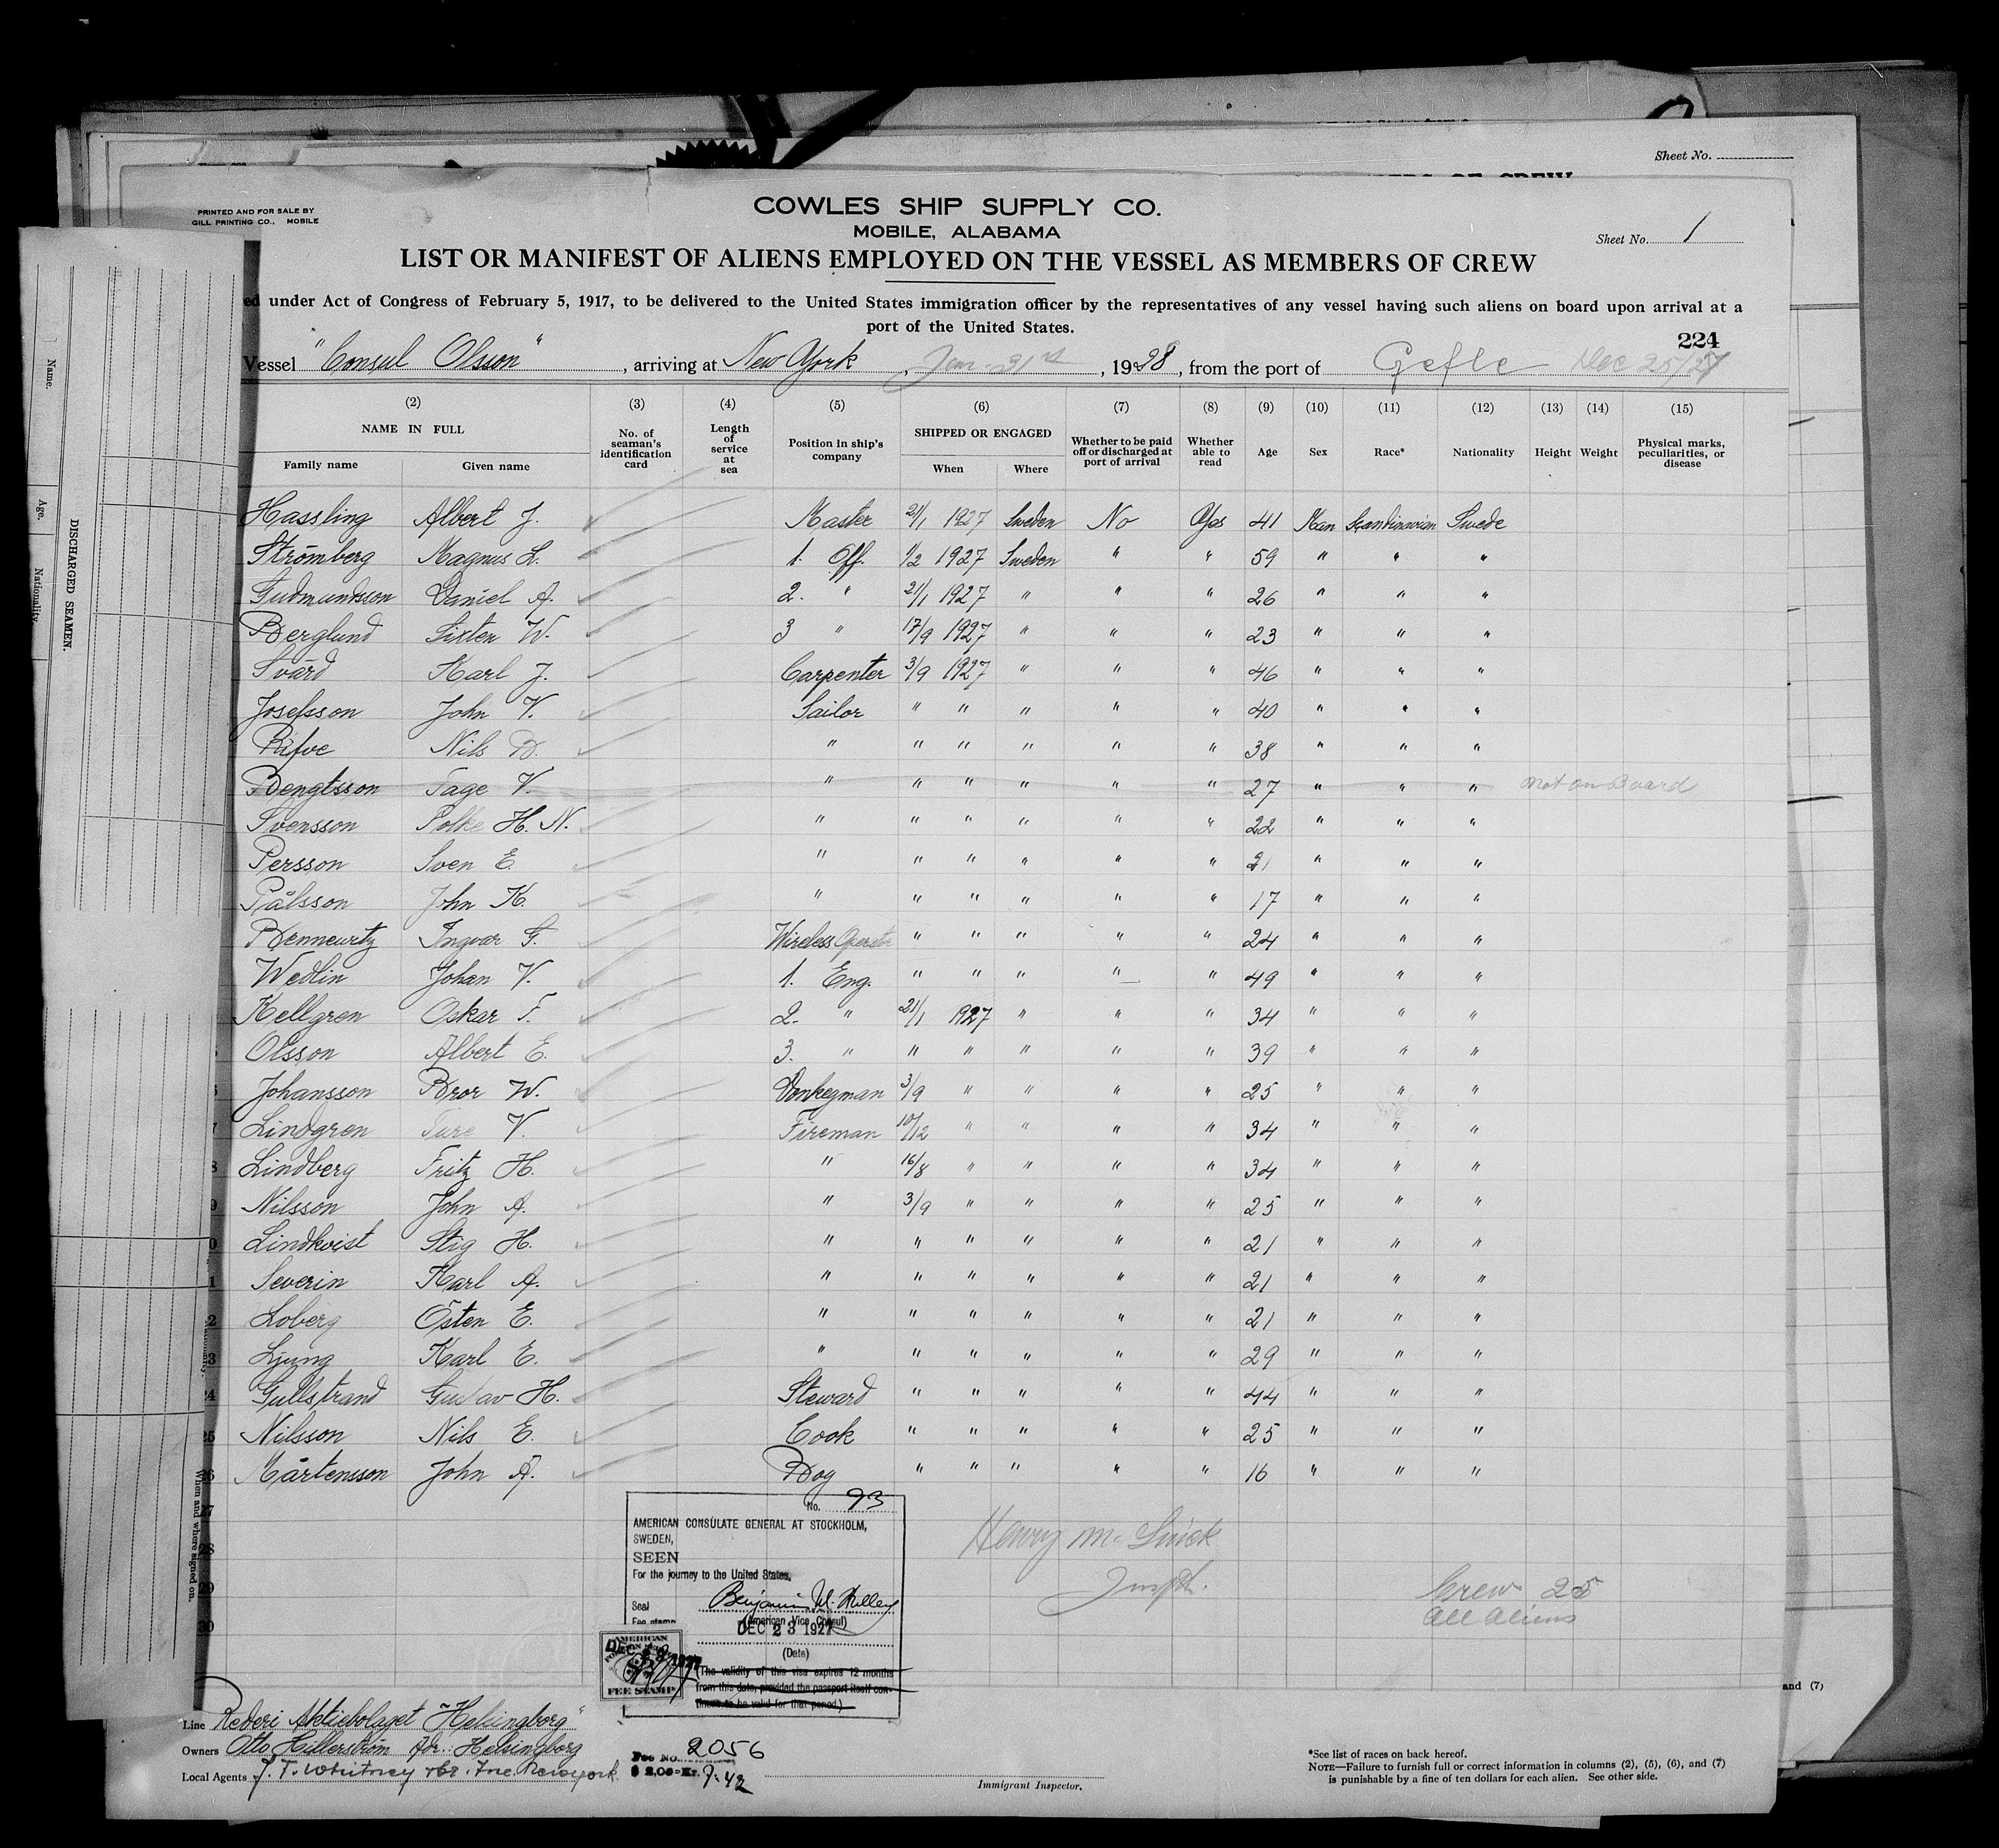 Sheet No.
PRINTED AND FOR SALE BY
GILL PRINTING CO., MOBILE
COWLES SHIP SUPPLY CO.
MOBILE, ALABAMA
Sheet No. 1
LIST OR MANIFEST OF ALIENS EMPLOYED ON THE VESSEL AS MEMBERS OF CREW
ed under Act of Congress of February 5, 1917, to be delivered to the United States immigration officer by the representatives of any vessel having such aliens on board upon arrival at a
port of the United States.
224
Vessel "Consul Olsson", arriving at New York, Jan. 31st, 1928, from the port of Gefle Dec 25/27
(2) (3) (4) (5) (6) (7) (8) (9) (10) (11) (12) (13) (14) (15)
NAME IN FULL No. of seaman's identification card Length of service at sea Position in ship's company SHIPPED OR ENGAGED Whether to be paid off or discharged at port of arrival Whether able to read Age Sex Race* Nationality Height Weight Physical marks, peculiarities, or disease
Family name Given name When Where
Hassling Albert J. Master 21/1 1927 Sweden No Yes 41 Man Scandinavian Swede
Strömberg Magnus L. 1. Off. 1/2 1927 Sweden " " 59 " " "
Gudmundsson Daniel A. 2. " 21/1 1927 " " " 26 " " "
Berglund Sixten W. 3 " 17/9 1927 " " " 23 " " "
Svärd Karl J. Carpenter 3/9 1927 " " " 46 " " "
Josefsson John V. Sailor " " " " " 40 " " "
Räfve Nils B. " " " " " " 38 " " "
Bengtsson Tage V. " " " " " " 27 " " " not on Board
Svensson Folke H. N. " " " " " " 22 " " "
Persson Sven E. " " " " " " 21 " " "
Pålsson John K. " " " " " " 17 " " "
Bennewitz Ingvar G. Wireless Operator " " " " " 24 " " "
Wedlin Johan V. 1. Eng. " " " " " 49 " " "
Kellgren Oskar F. 2. " 21/1 1927 " " " 34 " " "
Olsson Albert E. 3. " " " " " " 39 " " "
Johansson Bror W. Donkeyman 3/9 " " " " 25 " " "
Lindgren Ture V. Fireman 10/12 " " " " 34 " " "
Lindberg Fritz H. " 16/8 " " " " 34 " " "
Nilsson John A. " 3/9 " " " " 25 " " "
Lindkvist Stig H. " " " " " " 21 " " "
Severin Karl A. " " " " " " 21 " " "
Loberg Östen E. " " " " " " 21 " " "
Ljung Karl E. " " " " " " 29 " " "
Gullstrand Gustav H. Steward " " " " " 44 " " "
25 Nilsson Nils E. Cook " " " " " 25 " " "
26 Mårtensson John A. Boy " " " " " 16 " " "
27
28
29
30
No. 93
AMERICAN CONSULATE GENERAL AT STOCKHOLM,
SWEDEN,
SEEN
For the journey to the United States.
Seal Benjamin M. Hulley
Fee stamp (American Vice Consul)
DEC 23 1927
(Date)
(The validity of this visa expires 12 months
from this date, provided the passport itself con-
tinues to be valid for that period.)
AMERICAN
FEE STAMP
Henry
Crew 25
All Aliens
Line Rederi Aktiebolaget "Helsingborg"
Owners Otto Hillerström Adr.: Helsingborg
Local Agents J. T. Whitney Inc. New york.
Fee No. 2056
$ 2.00=Kr. 7.42
Immigrant Inspector.
*See list of races on back hereof.
NOTE—Failure to furnish full or correct information in columns (2), (5), (6), and (7)
is punishable by a fine of ten dollars for each alien. See other side.
and (7)
Name.
Age.
Nationality.
DISCHARGED SEAMEN.
When and where signed on.